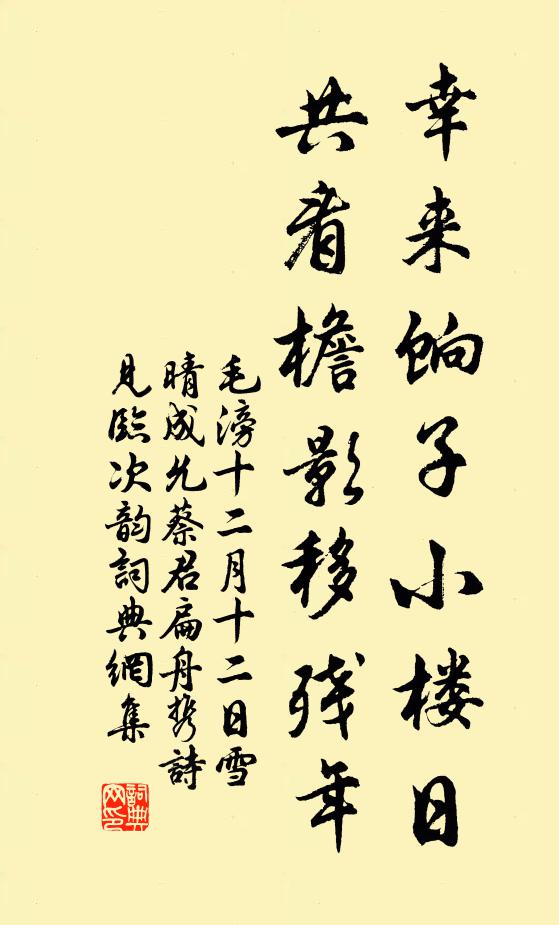 幸来饷子小楼日
共看檐影移残年
毛滂十二月十二日雪
晴成允蔡君扁舟携诗
见临次韵词典网集